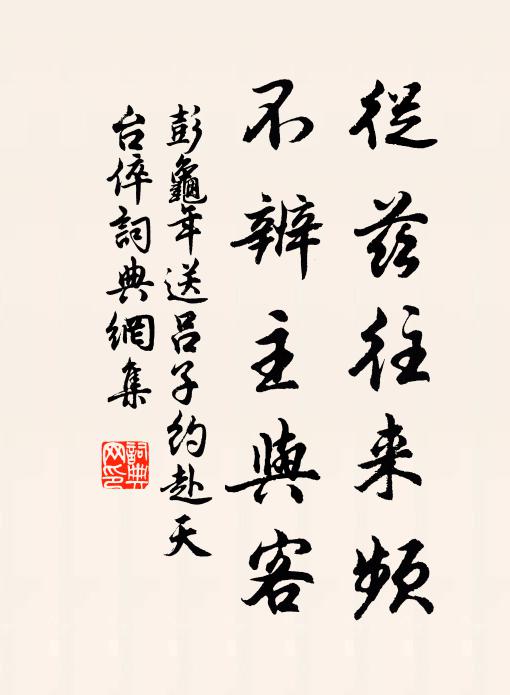 從茲往来頻
不辨主與客
彭龜年送呂子約赴天
台倅詞典網集
詞典网印